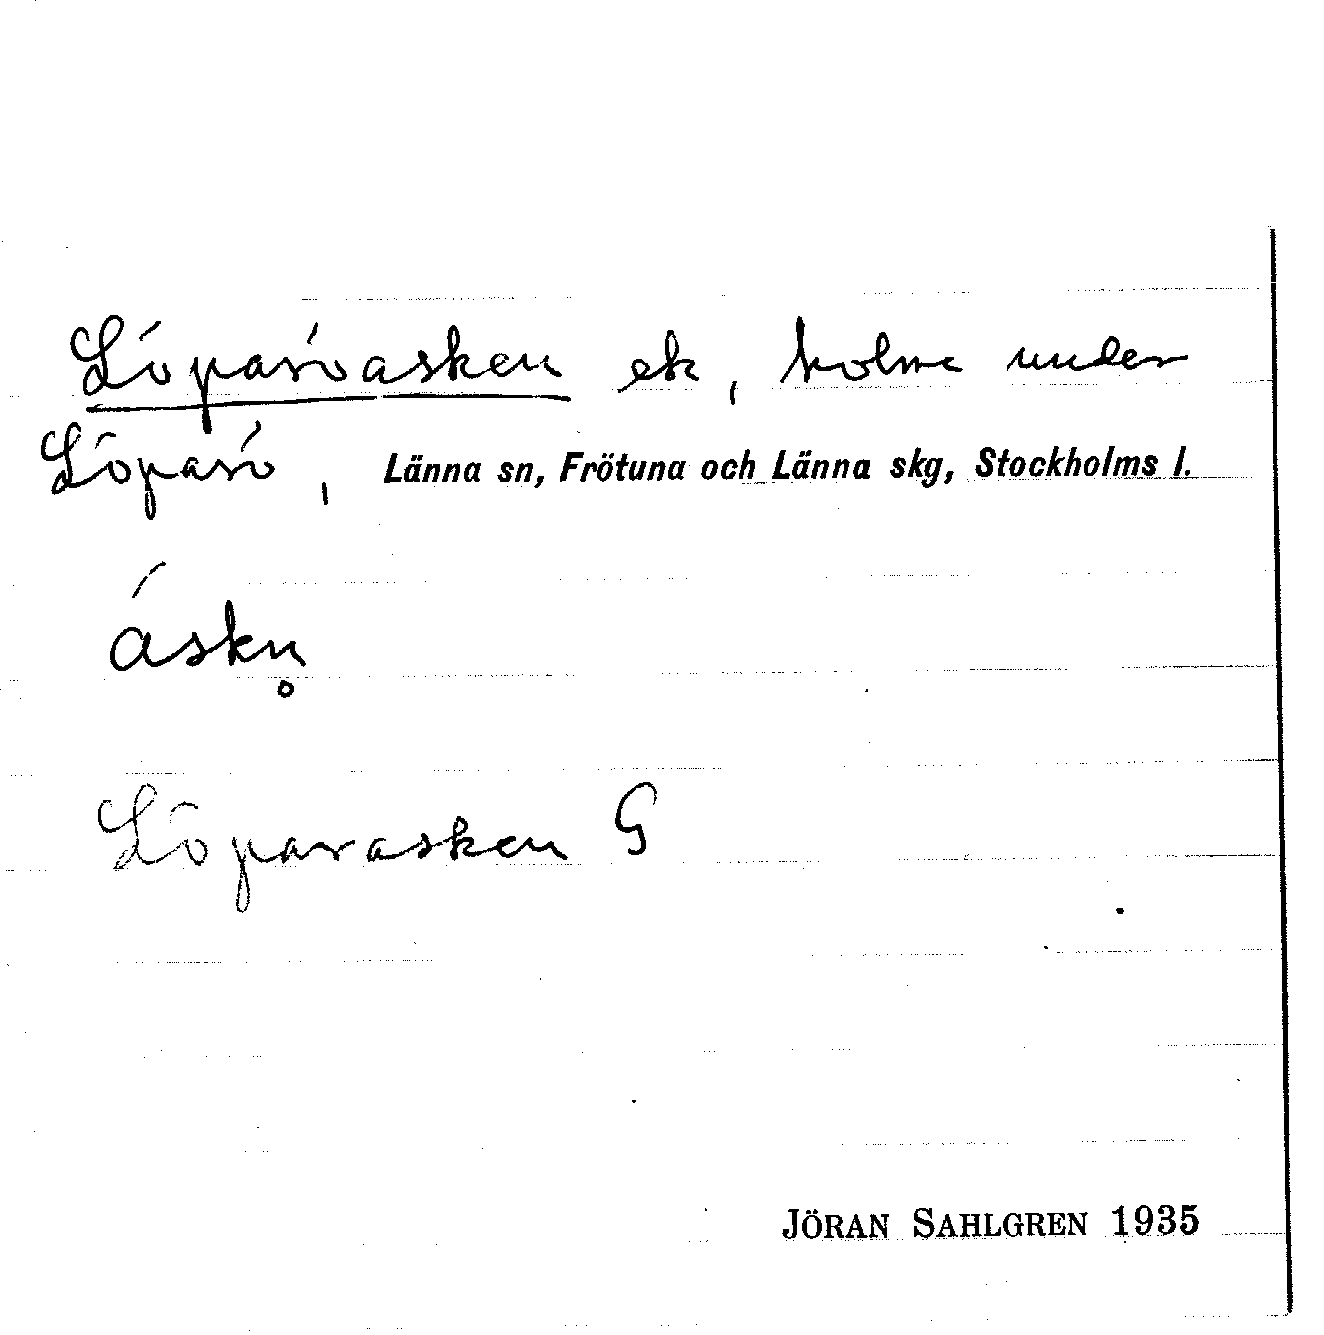 Löparöasken ek, holme under
Löparö, Länna sn, Frötuna och Länna skg, Stockholms l.
áskn̥
Löparasken G
JÖRAN SAHLGREN 1935